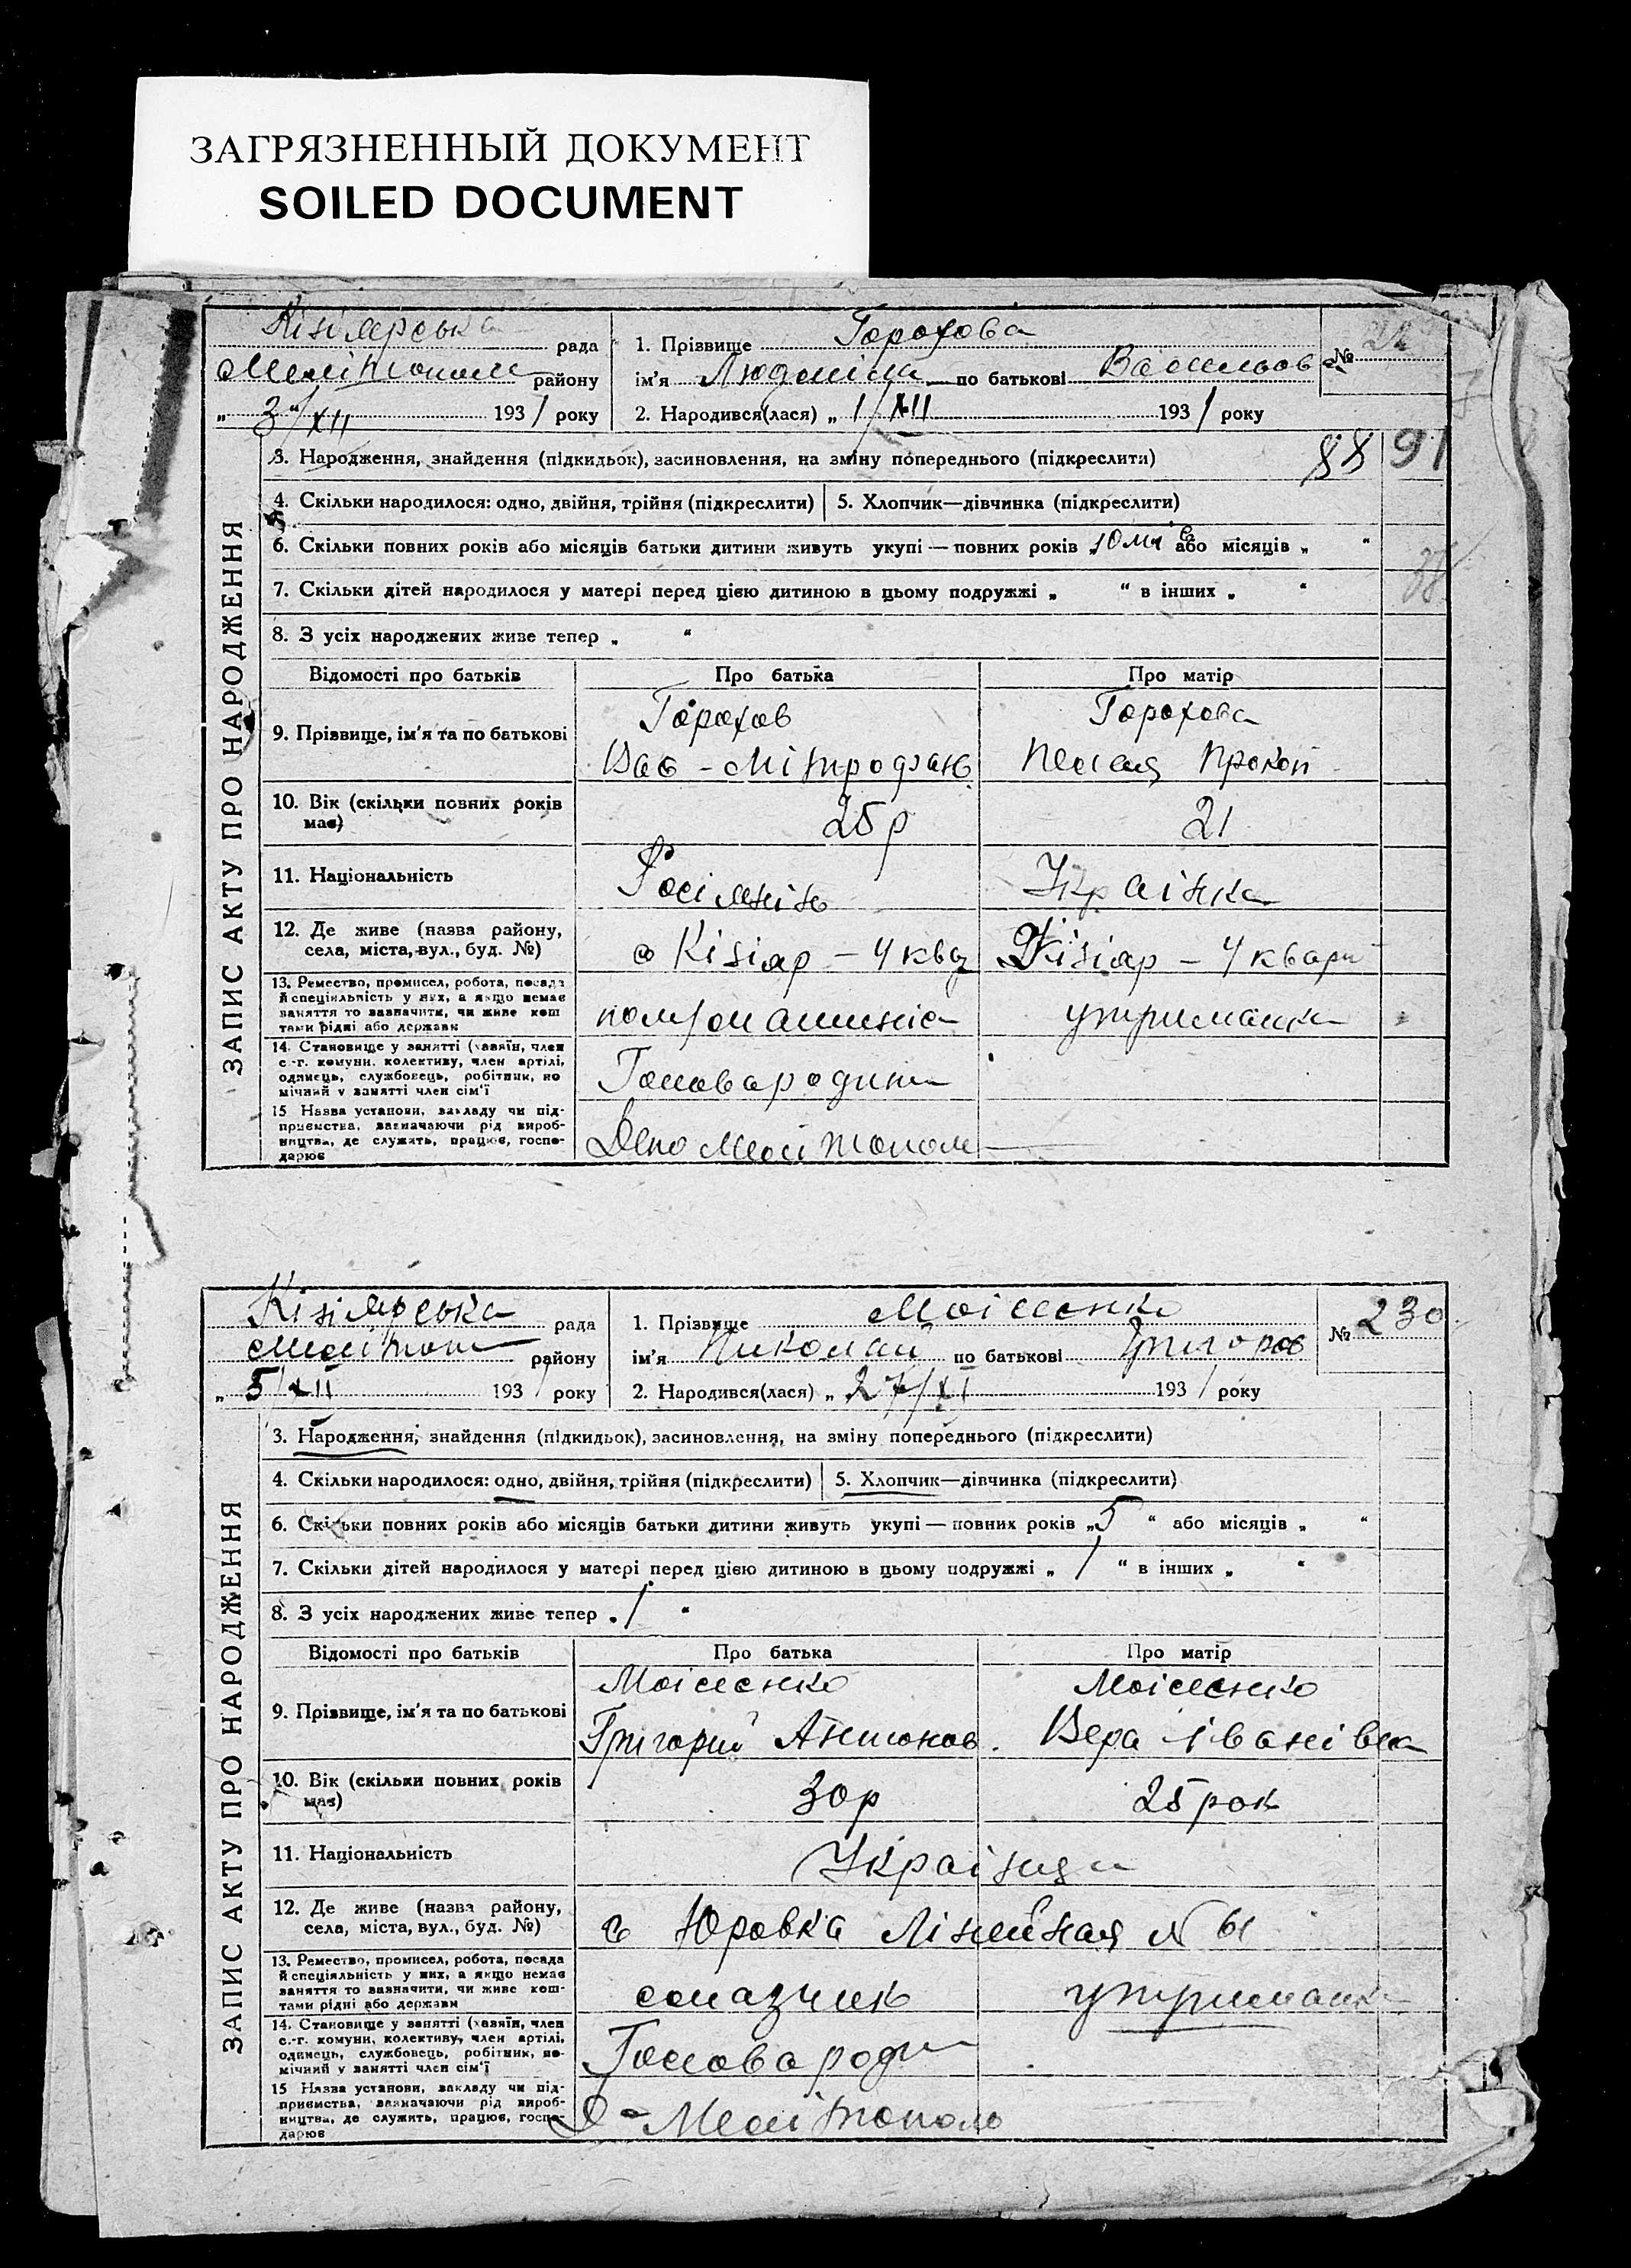 ЗАГРЯЗНЕННЫЙ ДОКУМЕНТ
SOILED DOCUMENT
ЗАПИС АКТУ ПРО НАРОДЖЕННЯ
Кізіярська рада
Мелітополь району
„ 3/XII 1931 року
1. Прізвище Горохова
ім'я Людміла по батькові Васильов №
2. Народився(лася) „ 1/XII 1931 року
3. Народження, знайдення (підкидьок), засиновлення, на зміну попереднього (підкреслити) 88 91
4. Скільки народилося: одно, двійня, трійня (підкреслити) 5. Хлопчик—дівчинка (підкреслити)
6. Скільки повних років або місяців батьки дитини живуть укупі — повних років „ 10 або місяців „ “
7. Скільки дітей народилося у матері перед цією дитиною в цьому подружжі „ “ в інших „ “
8. З усіх народжених живе тепер „ “
Відомості про батьків Про батька Про матір
9. Прізвище, ім'я та по батькові
Горохов Горохова
Вас - Мітрофан Пелагя Прокоп
10. Вік (скільки повних років має) 25 р 21
11. Національність Росіянін Українка
12. Де живе (назва району, села, міста, вул., буд. №) с Кізіяр - 4 ква Кізіяр - 4 кварт
13. Ремество, промисел, робота, посада й спеціяльність у них, а якщо немає заняття то зазначити, чи живе кош тами рідні або держави
пом/машиніс утриманка
14. Становище у занятті (хазяїн, член с.-г. комуни, колективу, член артілі, одинець, службовець, робітник, по мічний у занятті член сім'ї
Голова родини
15 Назва установи, закладу чи під- приємства, зазначаючи рід вироб- ництва, де служить, працює, госпо- дарює
Депо Мелітополь
ЗАПИС АКТУ ПРО НАРОДЖЕННЯ
Кізіярська рада
Мелітоп району
„ 5/XII 1931 року
1. Прізвище Моісеєнко
ім'я Николай по батькові Григоров № 230
2. Народився(лася) „ 27/XI 1931 року
3. Народження, знайдення (підкидьок), засиновлення, на зміну попереднього (підкреслити)
4. Скільки народилося: одно, двійня, трійня (підкреслити) 5. Хлопчик—дівчинка (підкреслити)
6. Скільки повних років або місяців батьки дитини живуть укупі — повних років „ 5 “ або місяців „ “
7. Скільки дітей народилося у матері перед цією дитиною в цьому подружжі „ 1 “ в інших „ “
8. З усіх народжених живе тепер „ 1 “
Відомості про батьків Про батька Про матір
9. Прізвище, ім'я та по батькові
Моісеєнко Моісеєнко
Григорий Антонов. Вера Іванівна
10. Вік (скільки повних років має) 30 р 25 рок
11. Національність Українци
12. Де живе (назва району, села, міста, вул., буд. №) с Юровка Лінейная N 61
13. Ремество, промисел, робота, посада й спеціяльність у них, а якщо немає заняття то зазначити, чи живе кош- тами рідні або держави
смазчик утриманка
14. Становище у занятті (хазяїн, член с.-г. комуни, колективу, член артілі, одинець, службовець, робітник, по- мічний у занятті член сім'ї
Голова роди
15 Назва установи, закладу чи під- приємства, зазначаючи рід вироб- ництва, де служить, працює, госпо- дарює
Д - Мелітополь